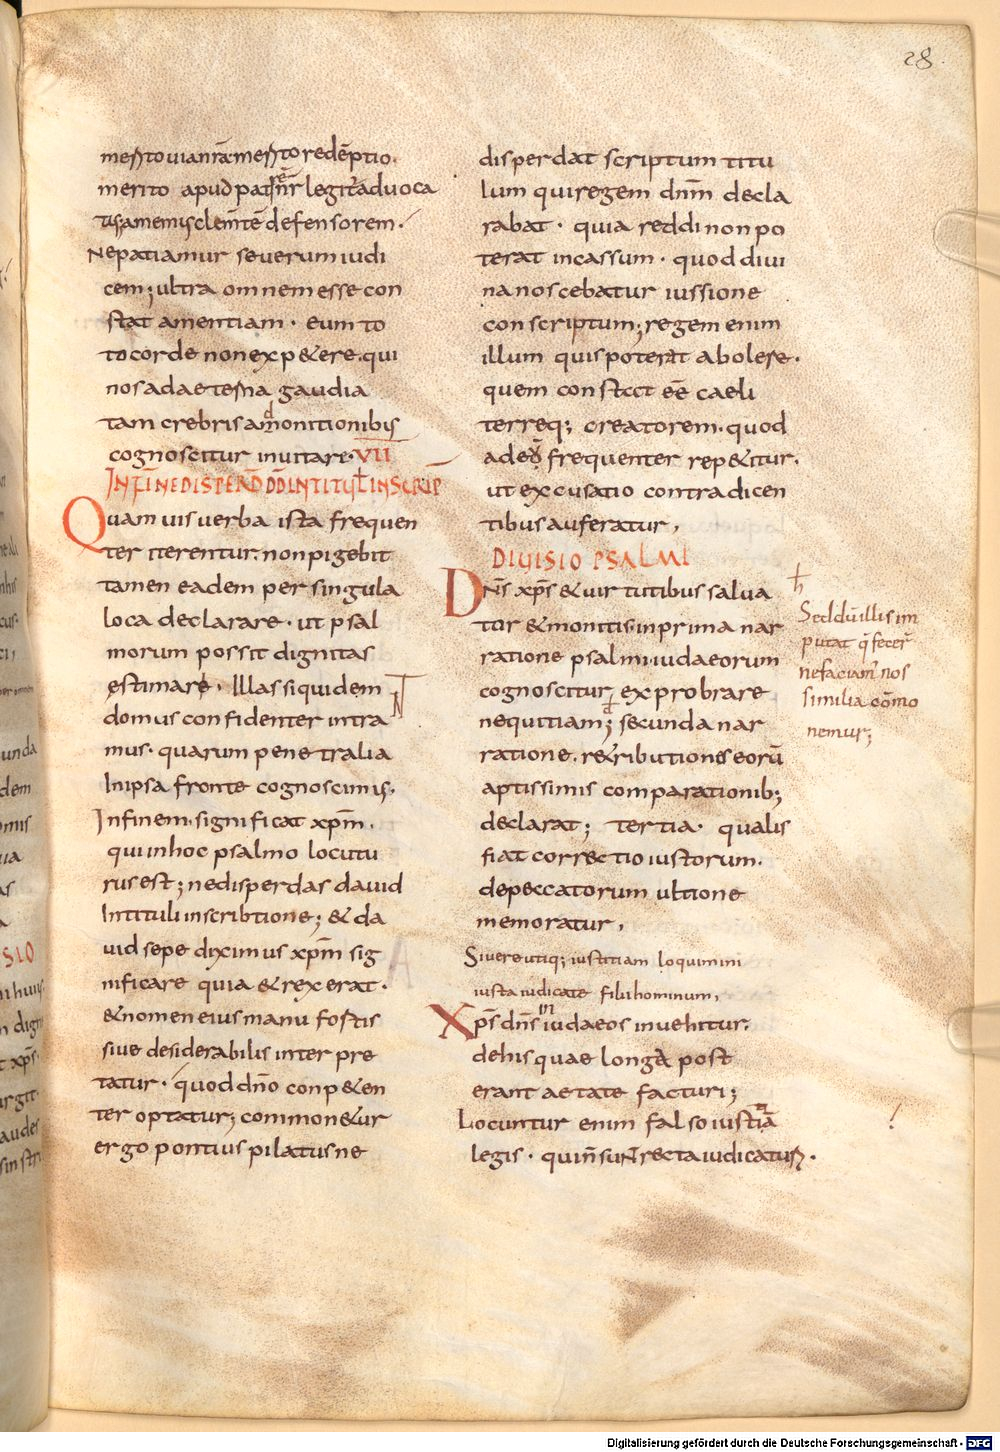 28.
mestouianrāmestoredēptio.
merito apud patrē nr̄ legit̄aduoca
tus amemus clemītē defensorem.
Nepatiamur seuerum iudi
cem; ultra omnem esse con
stat amentiam. eum to
to corde non exp&ere. qui
nos ad aeterna gaudia
tam crebris admonitionibus
cognoscitur inuitare. VII
IN FINE DISPERD̄ DD̄ IN TITULI INSCRIP̄
Quam uis uerba ista frequen
ter iterentur. non pigebit
tamen eadem per singula
loca declarare. ut psal
morum possit dignitas
estimare. Illas siquidem
domus confidenter intra
mus. quarum penetralia
In ipsa fronte cognoscimus.
Infinem. significat xpm̄.
qui in hoc psalmo locutu
rus est; nedisperdas dauid
Intituli inscribtione; & da
uid sepe diximus xpm̄ sig
nificare quia & rex erat.
& nomen eius manu fostis
siue desiderabilis inter pre
tatur. quod dn̄o conp&en
ter optatur; common&ur
ergo pontius pilatus ne
disperdat scriptum titu
lum qui regem dnm̄ decla
rabat. quia reddi non po
terat incassum. quod diui
na noscebatur iussione
conscriptum; regem enim
illum quis poterat abolere.
quem constat eē caeli
terreq; creatorem. quod
adeo frequenter rep&itur.
ut excusatio contradicen
tibus auferatur,
DIUISIO PSALMI
Dn̄s xp̄s & uirtutibus salua
tor & monitis in prima nar
ratione psalmi iudaeorum
cognoscitur exprobrare
nequitiam; secunda nar
ratione. r&ributiones eorū
aptissimis comparationib;
declarat; tertia. qualis
fiat correctio iustorum.
de peccatorum ultione
memoratur,
Si uere utiq; iustitiam loquimini
iusta iudicate filii hominum,
Xp̄s dn̄s in iudaeos inuehitur.
de his quae longe post
erant aetate facturi;
Locuntur enim falso iustitiā
legis. qui n̄ sunt recta iudicaturi.
h̄
Sed dū illis im
putat q̄ fecer̄
ne faciam̄ nos
similia cōmo
nemur;
Digitalisierung gefördert durch die Deutsche Forschungsgemeinschaft - DFG